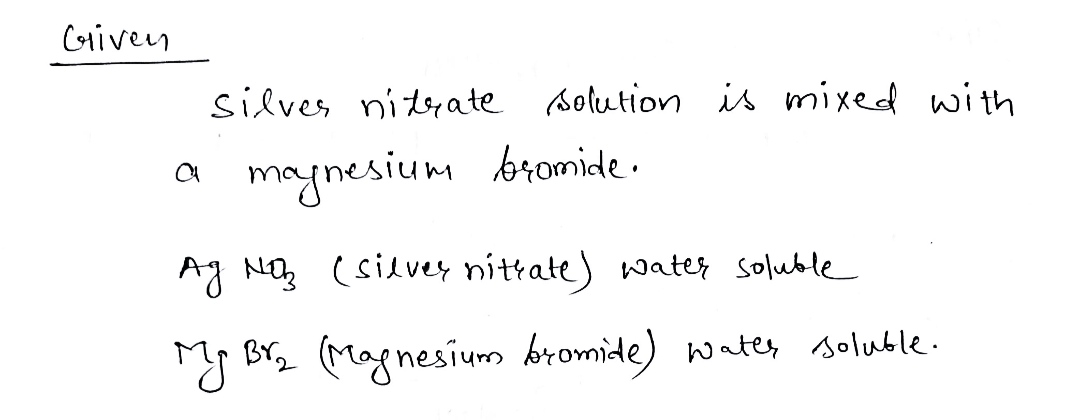 Given
silver nitrate solution is mixed with
a magnesium bromide.
Ag NO3 (silver nitrate) water soluble
Mg Br2 (Magnesium bromide) water soluble.